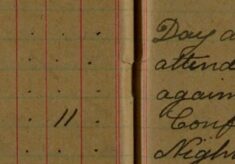 Day a
attend
again
11
Conf
Nigh